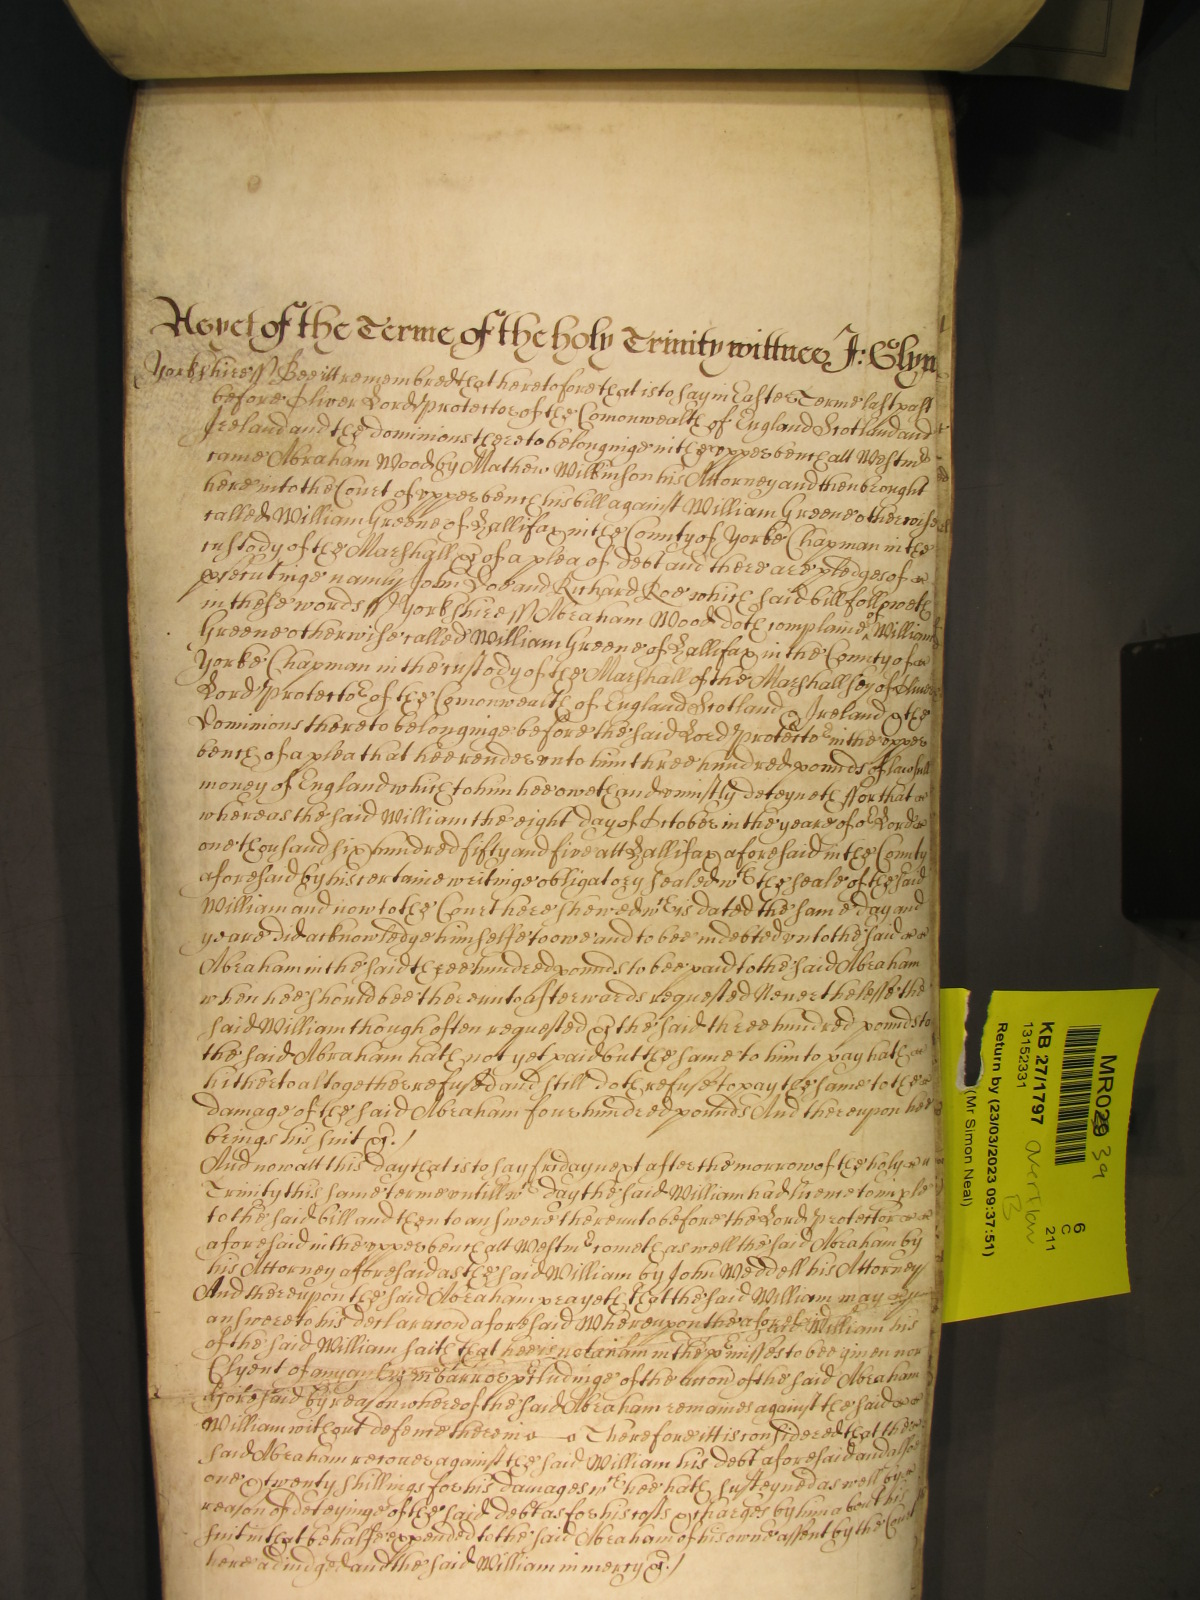 As yet of the Terme of the holy Trinity wittnes J: Glyn
Yorkshire ss Bee itt remembred that heretofore that is to say in Easter Terme last past
before Oliver Lord Protector of the Comonwealth of England Scotland and
Ireland and the dominions thereto belonginge in the upper bench att Westmr
came Abraham Wood by Mathew Wilkinson his Attorney and then brought
here into the Court of upper bench his bill against William Greene otherwise
called William Greene of Hallifax in the County of Yorke Chapman in the
custody of the Marshall &c of a plea of debt and there are pledges of
prosecutinge namely John Doe and Richard Roe which said bill followeth
in these words ss Yorkshire ss Abraham Wood doth complaine of William
Greene otherwise called William Greene of Hallifax in the County of
Yorke Chapman in the custody of the Marshall of the Marshallsey of Oliver
Lord Protector of the Comonwealth of England Scotland & Ireland & the
Dominions thereto belonginge before the said Lord Protector in the upper
bench of a plea that hee render unto him three hundred pounds of lawfull
money of England which to him hee oweth and uniustly deteyneth ffor that
whereas the said William the eight day of October in the yeare of or Lord
one thousand six hundred fifty and five att Hallifax aforesaid in the County
aforesaid by his certaine writinge obligatory sealed wth the seale of the said
William and now to the Court here shewed wch is dated the same day and
yeare did acknowledge himselfe to owe and to bee indebted unto the said
Abraham in the said three hundred pounds to bee paid to the said Abraham
when hee should bee thereunto afterwards requested Neverthelesse the
said William though often requested &c the said three hundred pounds to
the said Abraham hath not yet paid but the same to him to pay hath
hitherto altogether refused and still doth refuse to pay the same to the
damage of the said Abraham foure hundred pounds And thereupon hee
brings his suit &c. /
And now att this day that is to say fryday next after the morrow of the holy
Trinity this same terme untill wch day the said William had licence to imple
to the said bill and then to answere thereunto before the Lord Protector
aforesaid in the upper bench att Westmr cometh as well the said Abraham by
his Attorney aforesaid as the said William by John Weddell his Attorney
And thereupon the said Abraham prayeth that the said William may
answere to his declaracion aforesaid Whereupon the aforesaid William his
of the said William saith that hee is not in the premisses to bee given nor
Clyent of any in barr or precludinge of the accion of the said Abraham
aforesaid by reason whereof the said Abraham remaines against the said
William without defence therein Therefore itt is considered that the
said Abraham recover against the said William his debt aforesaid and alsoe
one & twenty shillings for his damages wch hee hath susteyned as well by
reason of deteyinge of the said debt as for his costs & charges by him about his
suit in that behalfe expended to the said Abraham of his owne assent by the Court
here adiudged and the said William in mercy &c. /
MR029 39
6
C
211
KB 27/1797
13152331
Return by (23/03/2023 09:37:51)
(Mr Simon Neal)